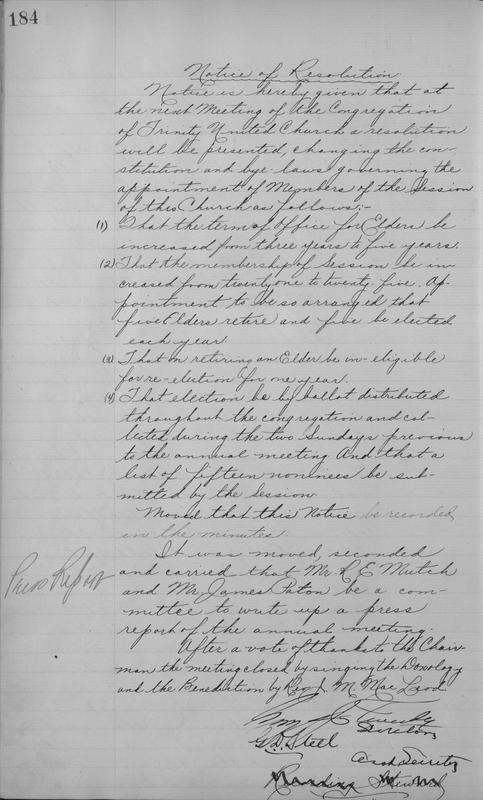 184
Notice of Resolution
Notice is hereby given that at
the next Meeting of the Congregation
of Trinity United Church a resolution
will be presented, changing the con-
stitution and bye laws governing the
appointment of Members of the Session
of this Church as follows:-
(1) That the term of Office for Elders be
increased from three years to five years.
(2) That the membership of Session be in-
creased from twenty one to twenty five. Ap-
pointment to be so arranged that
five Elders retire and five be elected
each year
(3) That on retiring an Elder be in-eligible
for re-election for one year.
(4) That election be by ballot distributed
throughout the congregation and col-
lected during the two Sundays previous
to the annual meeting And that a
list of fifteen nominees be sub-
mitted by the Session
Moved that this Notice be recorded
in the minutes.
It was moved, seconded
Press Report
and carried that Mr. R. E. Mutch
and Mr. James Paton be a com-
mittee to write up a press
report of the annual meeting.
After a vote of thanks to the Chair-
man the meeting closed by singing the Doxology
and the Benediction by Rev J. M. Mac Leod
G. D. Steel